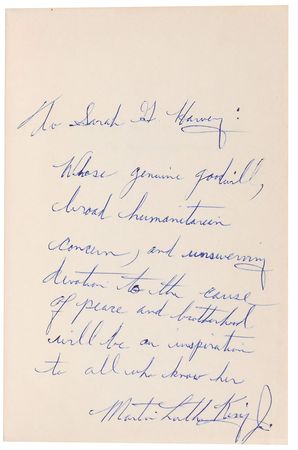 To Sarah G Harvey:
Whose genuine goodwill,
broad humanitarian
concern, and unswerving
devotion to the cause
of peace and brotherhood
will be an inspiration
to all who know her
Martin Luther King Jr.